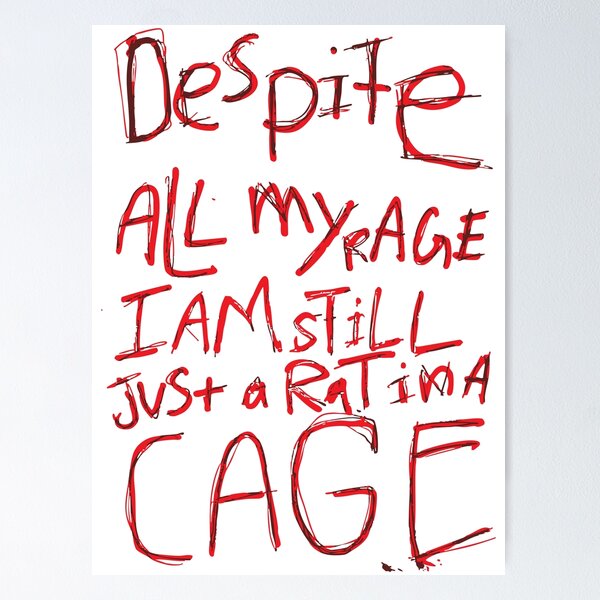 Despite
ALL MY RAGE
I AM STiLL
JUST a RaT iN A
CAGE